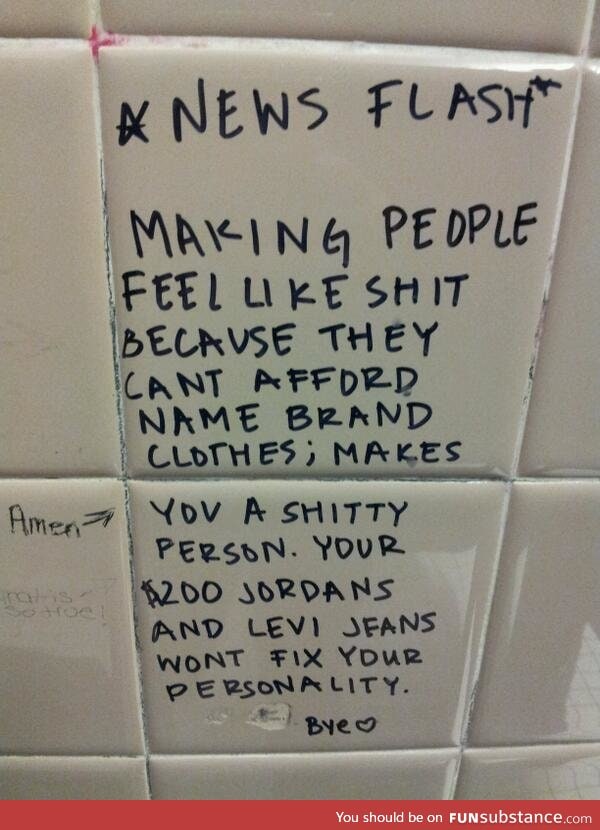 *NEWS FLASH*
MAKING PEOPLE
FEEL LIKE SHIT
BECAUSE THEY
CANT AFFORD
NAME BRAND
CLOTHES; MAKES
Amen→ YOU A SHITTY
PERSON. YOUR
$200 JORDANS
so true!
AND LEVI JEANS
WONT FIX YOUR
PERSONALITY.
Bye♡
You should be on FUNsubstance.com